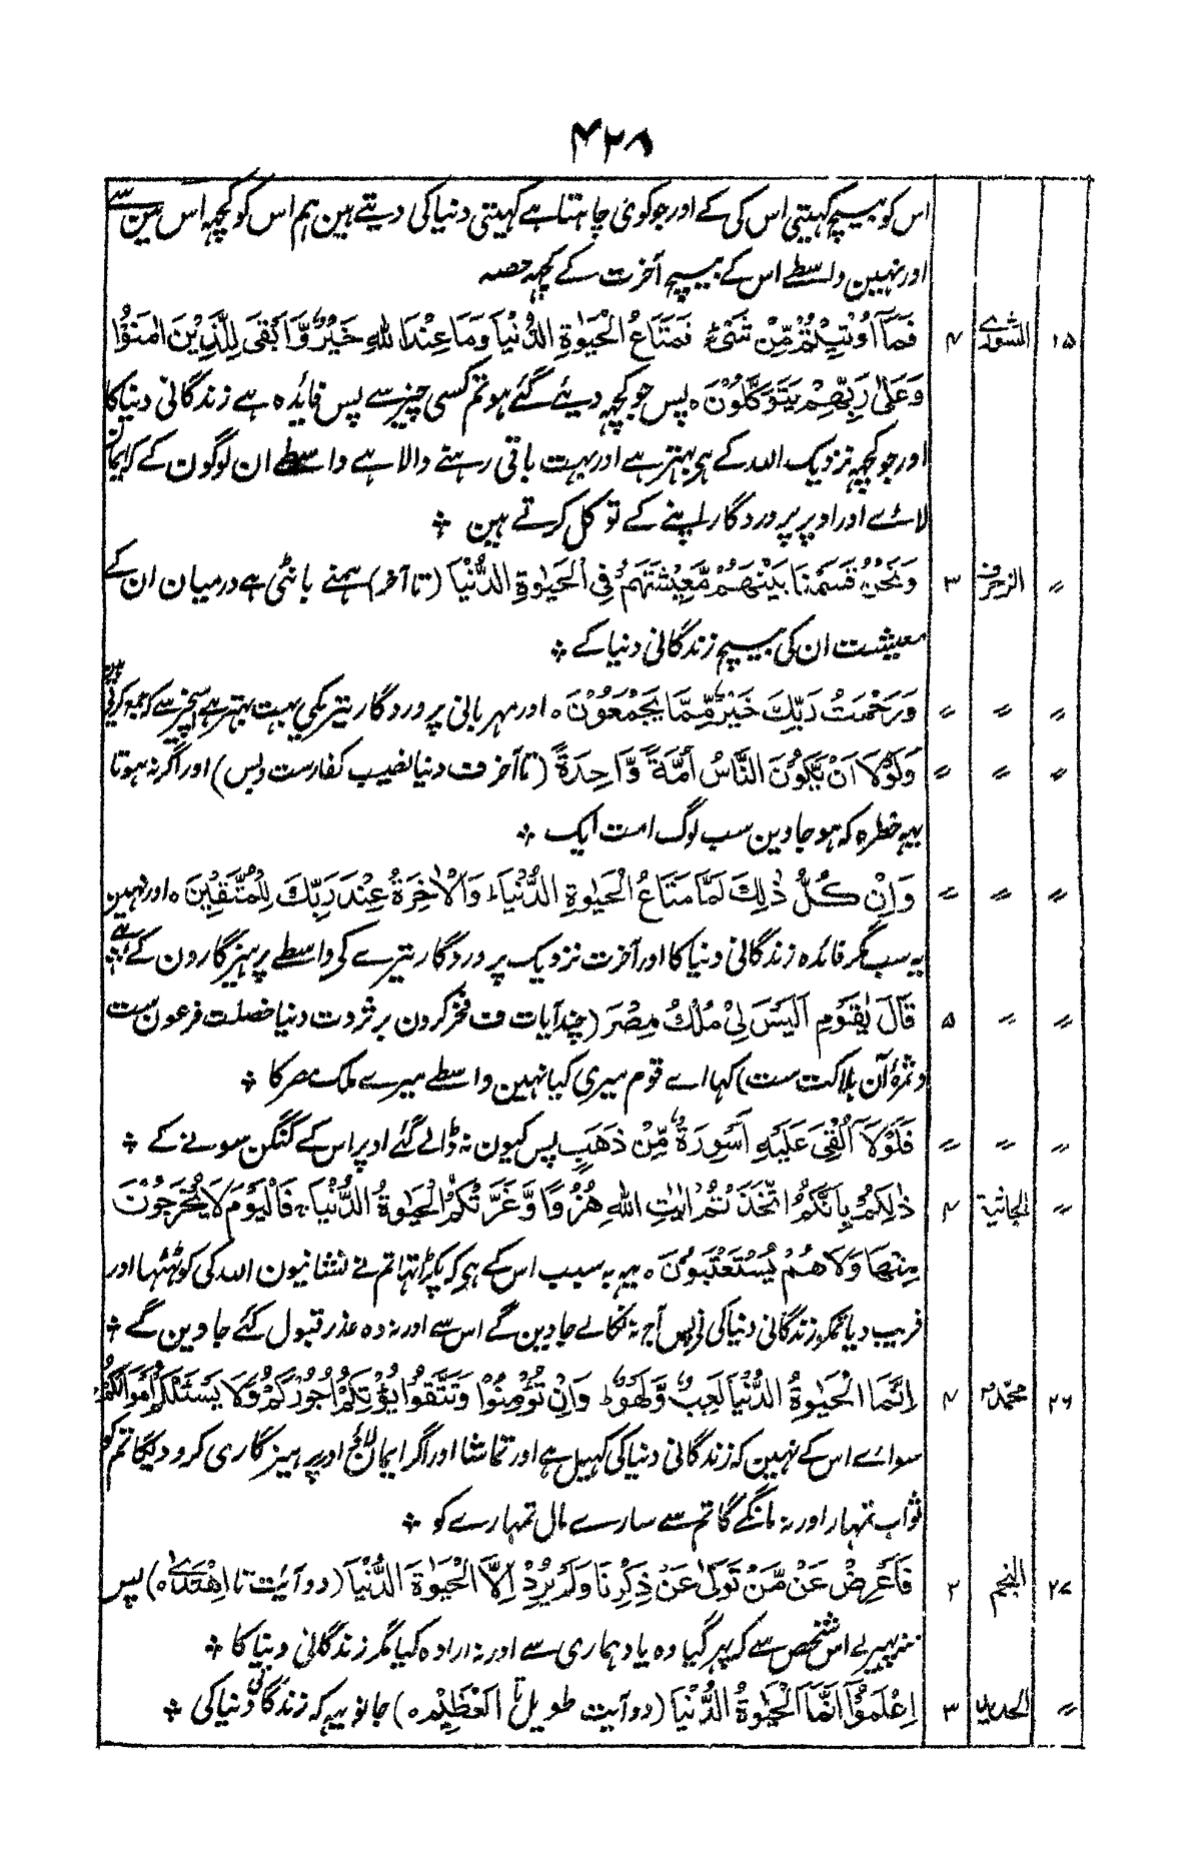 ۴۲۸
اس کو بیچ کھیتی اس کی کے اور جو کوئی چاہتا ہے کہیتی دنیا کی دیتے ہین ہم اس کو کچہہ اس مین سے
اور نہین واسطے اس کے بیچ آخرت کے کچہہ حصہ
۱۵ الشوری ۴ فَمَآ اُوْتِيْتُمْ مِّنْ شَىْءٍ فَمَتَاعُ الْحَيٰوةِ الدُّنْيَا وَمَا عِنْدَ اللّٰهِ خَيْرٌ وَّاَبْقٰى لِلَّذِيْنَ اٰمَنُوْا
وَعَلٰى رَبِّهِمْ يَتَوَكَّلُوْنَ ٥ پس جو کچہہ دیئے گئے ہو تم کسی چیز سے پس فائدہ ہے زندگانی دنیا کا
اور جو کچہہ نزدیک اللہ کے ہی بہتر ہے اور بہت باقی رہنے والا ہے واسطے ان لوگون کے کہ ایمان
لائے اور اوپر پروردگار اپنے کے توکل کرتے ہین ٭
〃 الزخرف ۳ وَنَحْنُ قَسَمْنَا بَيْنَهُمْ مَّعِيْشَتَهُمْ فِى الْحَيٰوةِ الدُّنْيَا (تا آخر) ہمنے بانٹی ہے درمیان ان کے
معیشت ان کی بیچ زندگانی دنیا کے ٭
〃 〃 〃 وَرَحْمَتُ رَبِّكَ خَيْرٌ مِّمَّا يَجْمَعُوْنَ ٥ اور مہربانی پروردگار تیرے کی بہت بہتر ہے اس چیز سے کہ جمع کرتے ہین
〃 〃 〃 وَلَوْلَآ اَنْ يَّكُوْنَ النَّاسُ اُمَّةً وَّاحِدَةً (تا آخر ف دنیا نصیب کفارست و بس) اور اگر نہ ہوتا
یہہ خطرہ کہ ہو جاوین سب لوگ امت ایک ٭
〃 〃 〃 وَاِنْ كُلُّ ذٰلِكَ لَمَّا مَتَاعُ الْحَيٰوةِ الدُّنْيَا ۚ وَالْاٰخِرَةُ عِنْدَ رَبِّكَ لِلْمُتَّقِيْنَ ٥ اور نہین
یہ سب مگر فائدہ زندگانی دنیا کا اور آخرت نزدیک پروردگار تیرے کی واسطے پرہیزگارون کے ہے ٭
〃 〃 ۵ قَالَ يٰقَوْمِ اَلَيْسَ لِىْ مُلْكُ مِصْرَ (چند آیات ف فخر کردن بر ثروت دنیا خصلت فرعون ست
و ثمرۂ آن ہلاکت ست) کہا اے قوم میری کیا نہین واسطے میرے ملک مصر کا ٭
〃 〃 〃 فَلَوْلَآ اُلْقِىَ عَلَيْهِ اَسْوِرَةٌ مِّنْ ذَهَبٍ پس کیون نہ ڈالے گئے اوپر اس کے کنگن سونے کے ٭
〃 الجاثیۃ ۴ ذٰلِكُمْ بِاَنَّكُمُ اتَّخَذْتُمْ اٰيٰتِ اللّٰهِ هُزُوًا وَّغَرَّتْكُمُ الْحَيٰوةُ الدُّنْيَا ۚ فَالْيَوْمَ لَا يُخْرَجُوْنَ
مِنْهَا وَلَا هُمْ يُسْتَعْتَبُوْنَ ٥ یہہ بہ سبب اس کے ہی کہ پکڑا تہا تم نے نشانیون اللہ کی کو ٹھٹھا اور
فریب دیا تمکو زندگانی دنیا کی نی پس آج نہ نکالے جاوین گے اس سے اور نہ وہ عذر قبول کئے جاوین گے ٭
۲۶ محمدؐ ۴ اِنَّمَا الْحَيٰوةُ الدُّنْيَا لَعِبٌ وَّلَهْوٌ ؕ وَاِنْ تُؤْمِنُوْا وَتَتَّقُوْا يُؤْتِكُمْ اُجُوْرَكُمْ وَلَا يَسْئَلْكُمْ اَمْوَالَكُمْ
سوائے اس کے نہین کہ زندگانی دنیا کی کہیل ہے اور تماشا اور اگر ایمان لاؤ اور پرہیزگاری کرو دیگا تم کو
ثواب تمہارا اور نہ مانگے گا تم سے سارے مال تمہارے کو ٭
۲۷ النجم ۲ فَاَعْرِضْ عَنْ مَّنْ تَوَلّٰى عَنْ ذِكْرِنَا وَلَمْ يُرِدْ اِلَّا الْحَيٰوةَ الدُّنْيَا (دو آیت تا اهْتَدٰى ٥) پس
منہ پہیر لے اس شخص سے کہ پہر گیا وہ یاد ہماری سے اور نہ ارادہ کیا مگر زندگانی دنیا کا ٭
〃 الحدید ۳ اِعْلَمُوْٓا اَنَّمَا الْحَيٰوةُ الدُّنْيَا (دو آیت طویل تا الْعَظِيْمِ ٥) جانو یہہ کہ زندگانی دنیا کی ٭